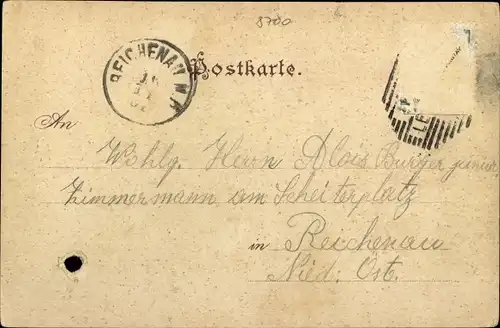 3700
REICHENAU N.Ö.
Postkarte.
LE
An
Wohlg. Herrn Alois Burger junior,
Zimmermann am Scheiterplatz
in Reichenau
Nied: Öst.